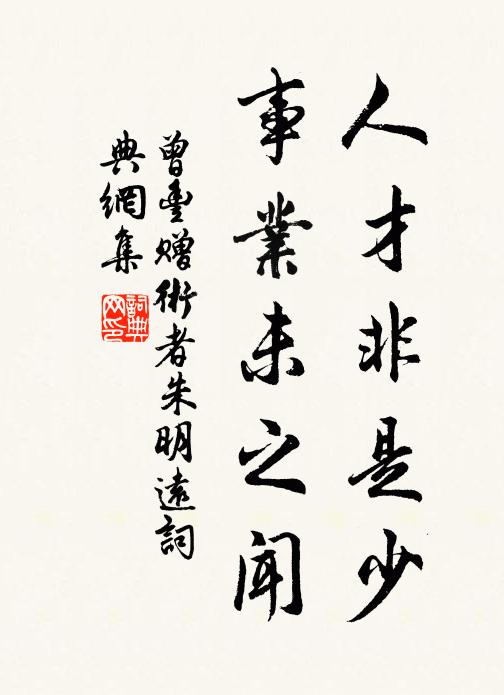 人才非是少
事業未之聞
曾豐贈術者朱明遠詞
典網集
詞典網印